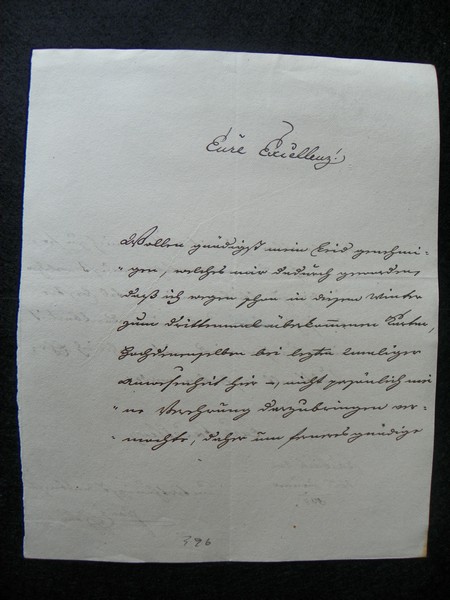 Eure Excellenz!
Wollen gnädigst mein Leid genehmi-
gen, welches mir dadurch geworden
daß ich wegen schon in diesem Winter
zum drittenmal überkommenen
Hochdenenselben bei letzt
Anwesenheit hier nicht persönlich mei
ne Verehrung darzubringen ver-
mochte, daher um ferners gnädige
396